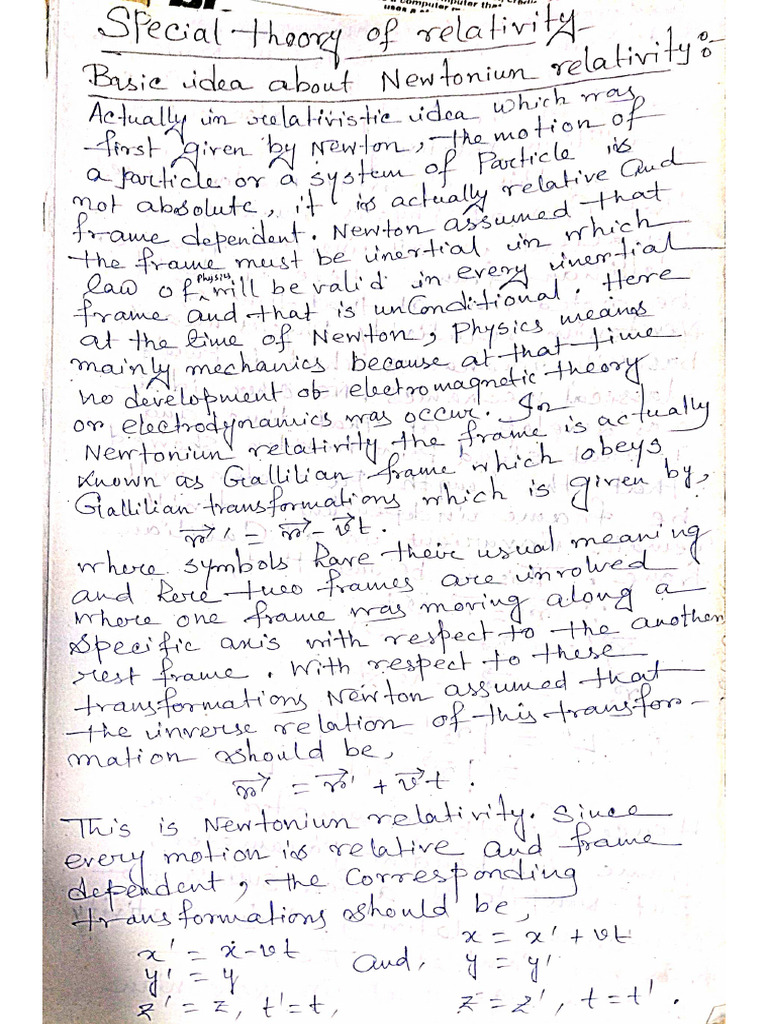 a computer
puter that
uses a
Special theory of relativity
Basic idea about Newtoniun relativity:
Actually in relativistic idea which was
first given by Newton, the motion of
a particle or a system of Particle is
not absolute, it is actually relative and
frame dependent. Newton assumed that
the frame must be inertial in which
law of physics will be valid in every inertial
frame and that is unconditional. Here
at the time of Newton, Physics means
mainly mechanics because at that time
no development ob electromagnetic theory
or electrodynamics was occur. In
Newtoniun relativity the frame is actually
known as Gallilian frame which obeys
Gallilian transformations which is given by,
r⃗' = r⃗ - v⃗t.
where symbols have their usual meaning
and here two frames are involved
where one frame was moving along a
specific axis with respect to the another
rest frame. With respect to these
transformations Newton assumed that
the inverse relation of this transfor-
mation should be,
r⃗ = r⃗' + v⃗t.
This is Newtoniun relativity. Since
every motion is relative and frame
dependent, the corresponding
transformations should be,
x' = x-vt and, x = x' + vt
y' = y y = y'
z' = z, t' = t, z = z', t = t'.